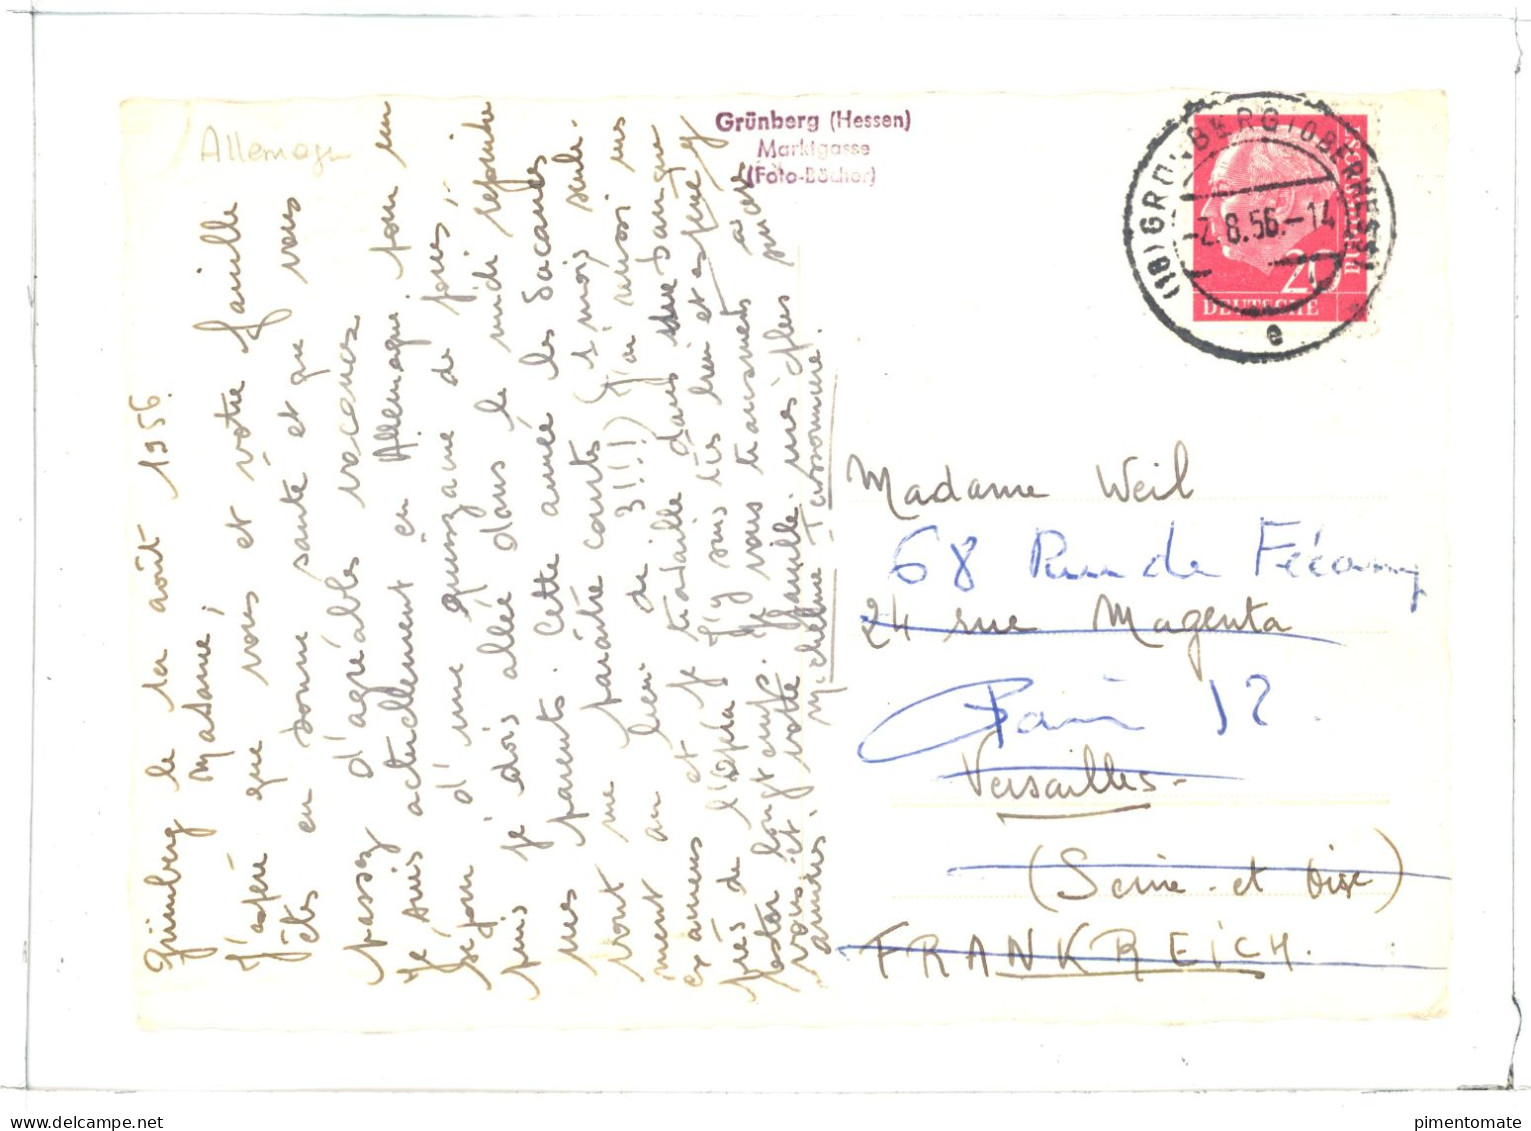 Allemagne
Grünberg (Hessen)
Marktgasse
(Foto-Böcher)
(16) GRÜNBERG (OBERHESS)
-2.8.56.-14
e
20
DEUTSCHE
BUNDESPOST
Grünberg le 1er août 1956.
Madame,
J'espère que vous et votre famille
êtes en bonne santé et que vous
passez d'agréables vacances
Je suis actuellement en Allemagne pour un
séjour d'une quinzaine de jours,
puis je dois allée dans le midi rejoindre
mes parents. Cette année les vacances
vont me paraître courtes (1 mois seule-
ment au lieu de 3!!!) J'ai aussi mes
examens et je travaille dans une banque
près de l'Opéra. J'y suis très bien et espère y
rester longtemps. Je vous transmets à
vous et votre famille mes plus sincères
amitiés
Micheline Tassonnière.
Madame Weil
68 Rue de Fécamp
24 rue Magenta
Paris 12
Versailles-
(Seine-et Oise)
FRANKREICH.
delcampe.net
pimentomate